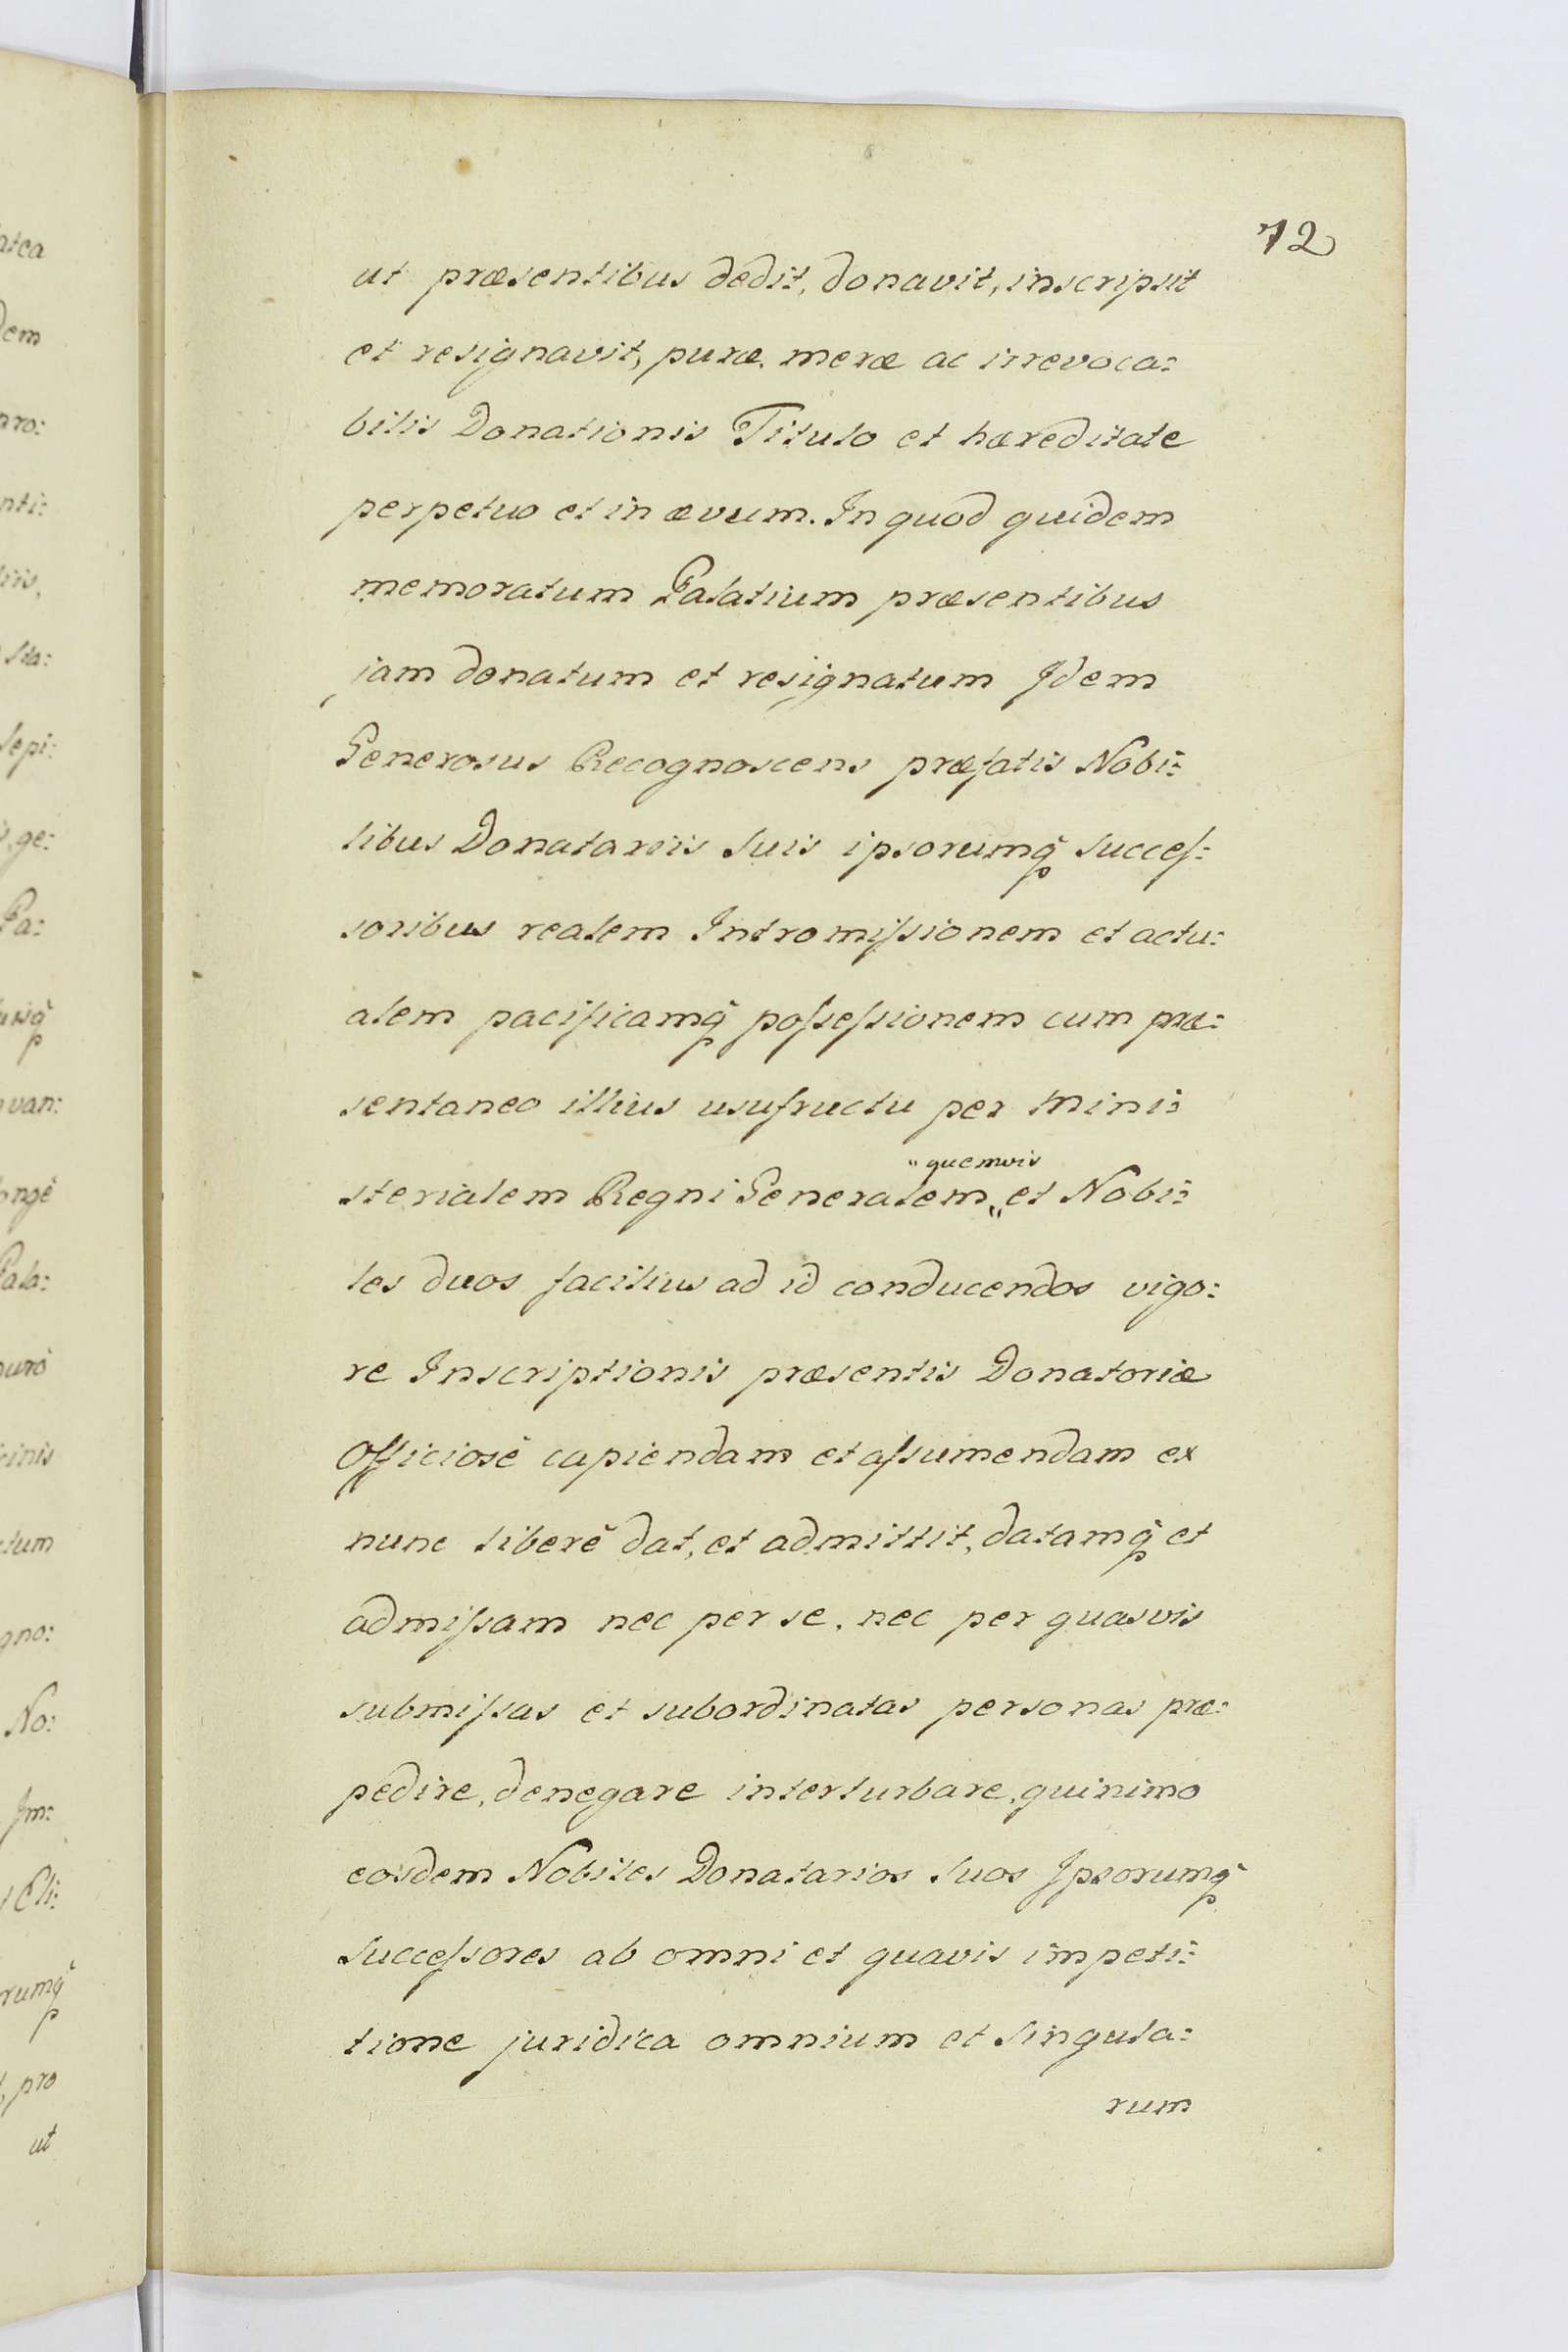 72
ut præsentibus dedit, donavit, inscripsit
et resignavit, puræ, meræ ac irrevoca:
bilis Donationis Titulo et hæreditate
perpetuo et in ævum. In quod quidem
memoratum Palatium præsentibus
jam donatum et resignatum Idem
Generosus Recognoscens præfatis Nobi:
libus Donatariis Suis ipsorumq̃ Succeſ:
soribus realem Intromiſsionem et actu:
alem pacificamq̃ poſseſsionem cum præ:
sentaneo illius usufructu per Mini:
" quemvis
sterialem Regni Generalem " et Nobi:
les duos facilius ad id conducendos vigo:
re Inscriptionis præsentis Donatoriæ
Officiosè capiendam et aſsumendam ex
nunc liberè dat, et admittit, datamq̃ et
admiſsam nec per se, nec per quasvis
submiſsas et subordinatas personas præ:
pedire, denegare interturbare, quinimo
eosdem Nobiles Donatarios Suos Ipsorumq̃
Succeſsores ab omni et quavis impeti:
tione juridica omnium et Singula:
rum
atea
dem
pro:
nti:
liis,
Sta:
Sepi:
ge:
Pa:
usq̃
van:
ongè
Pala:
cinis
ctum
gno:
No:
Im:
Eli:
rumq̃
, pro
ut